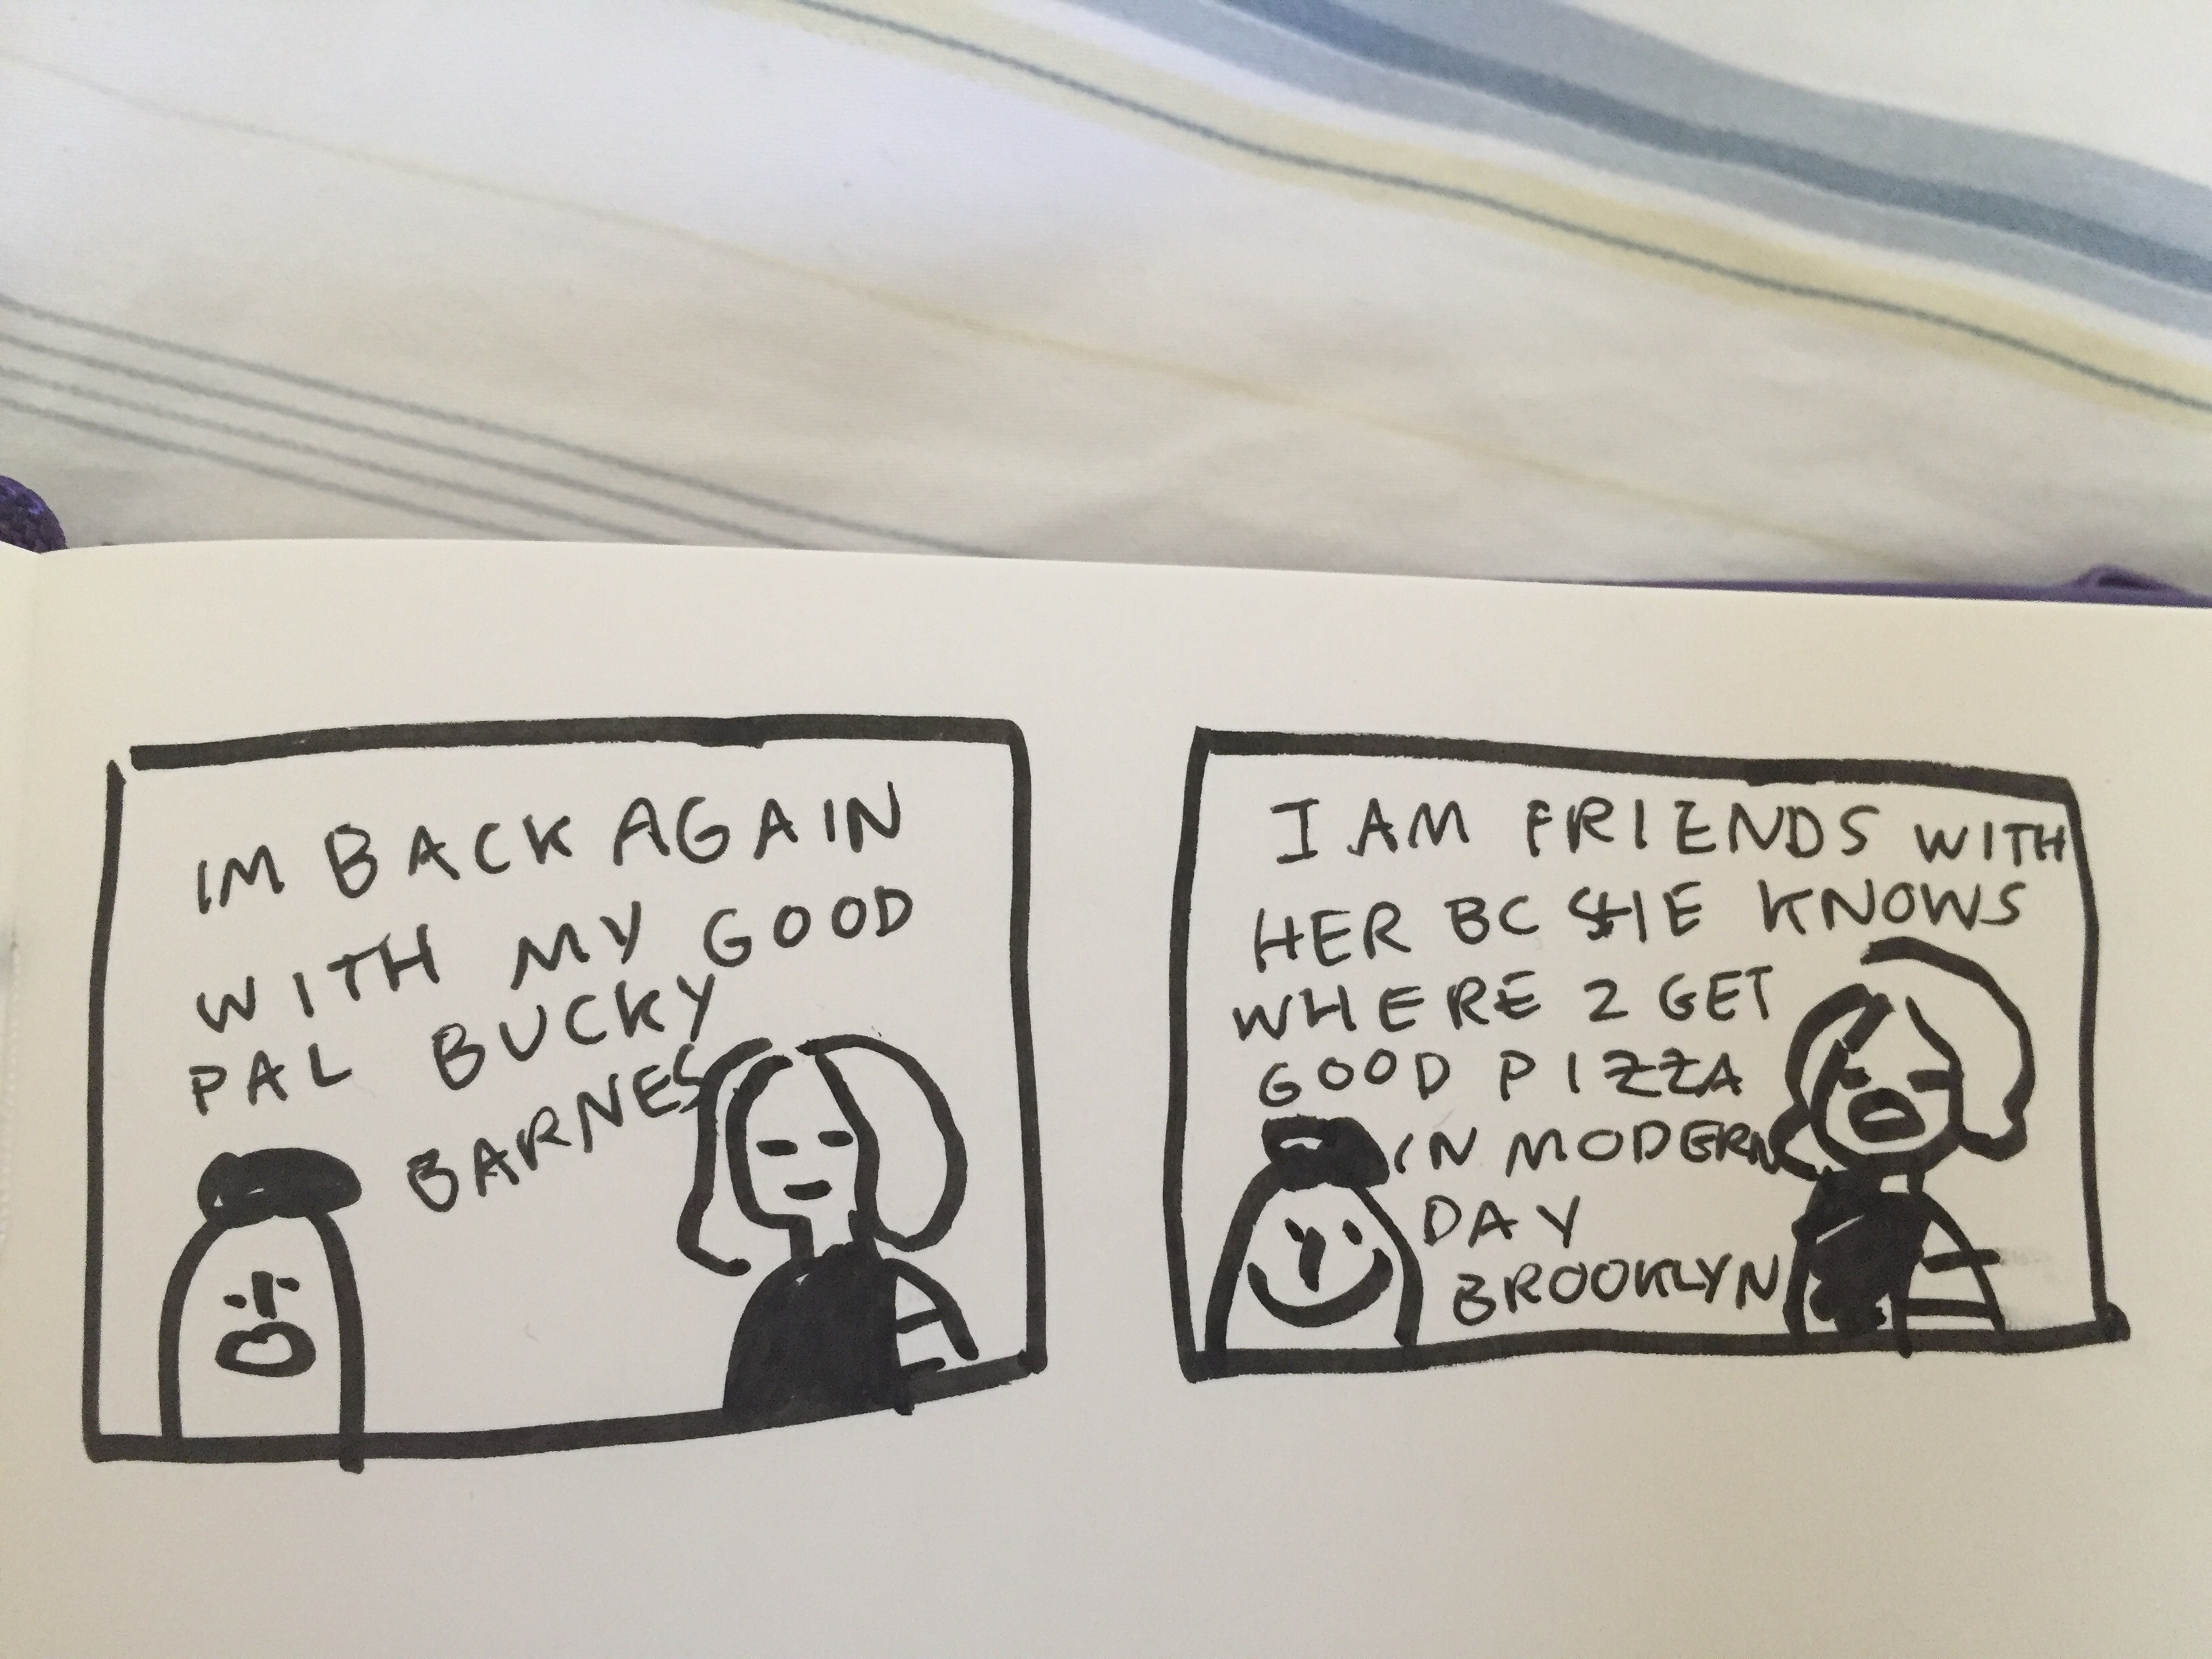 IM BACK AGAIN
WITH MY GOOD
PAL BUCKY
BARNES
I AM FRIENDS WITH
HER BC SHE KNOWS
WHERE 2 GET
GOOD PIZZA
IN MODERN
DAY
BROOKLYN